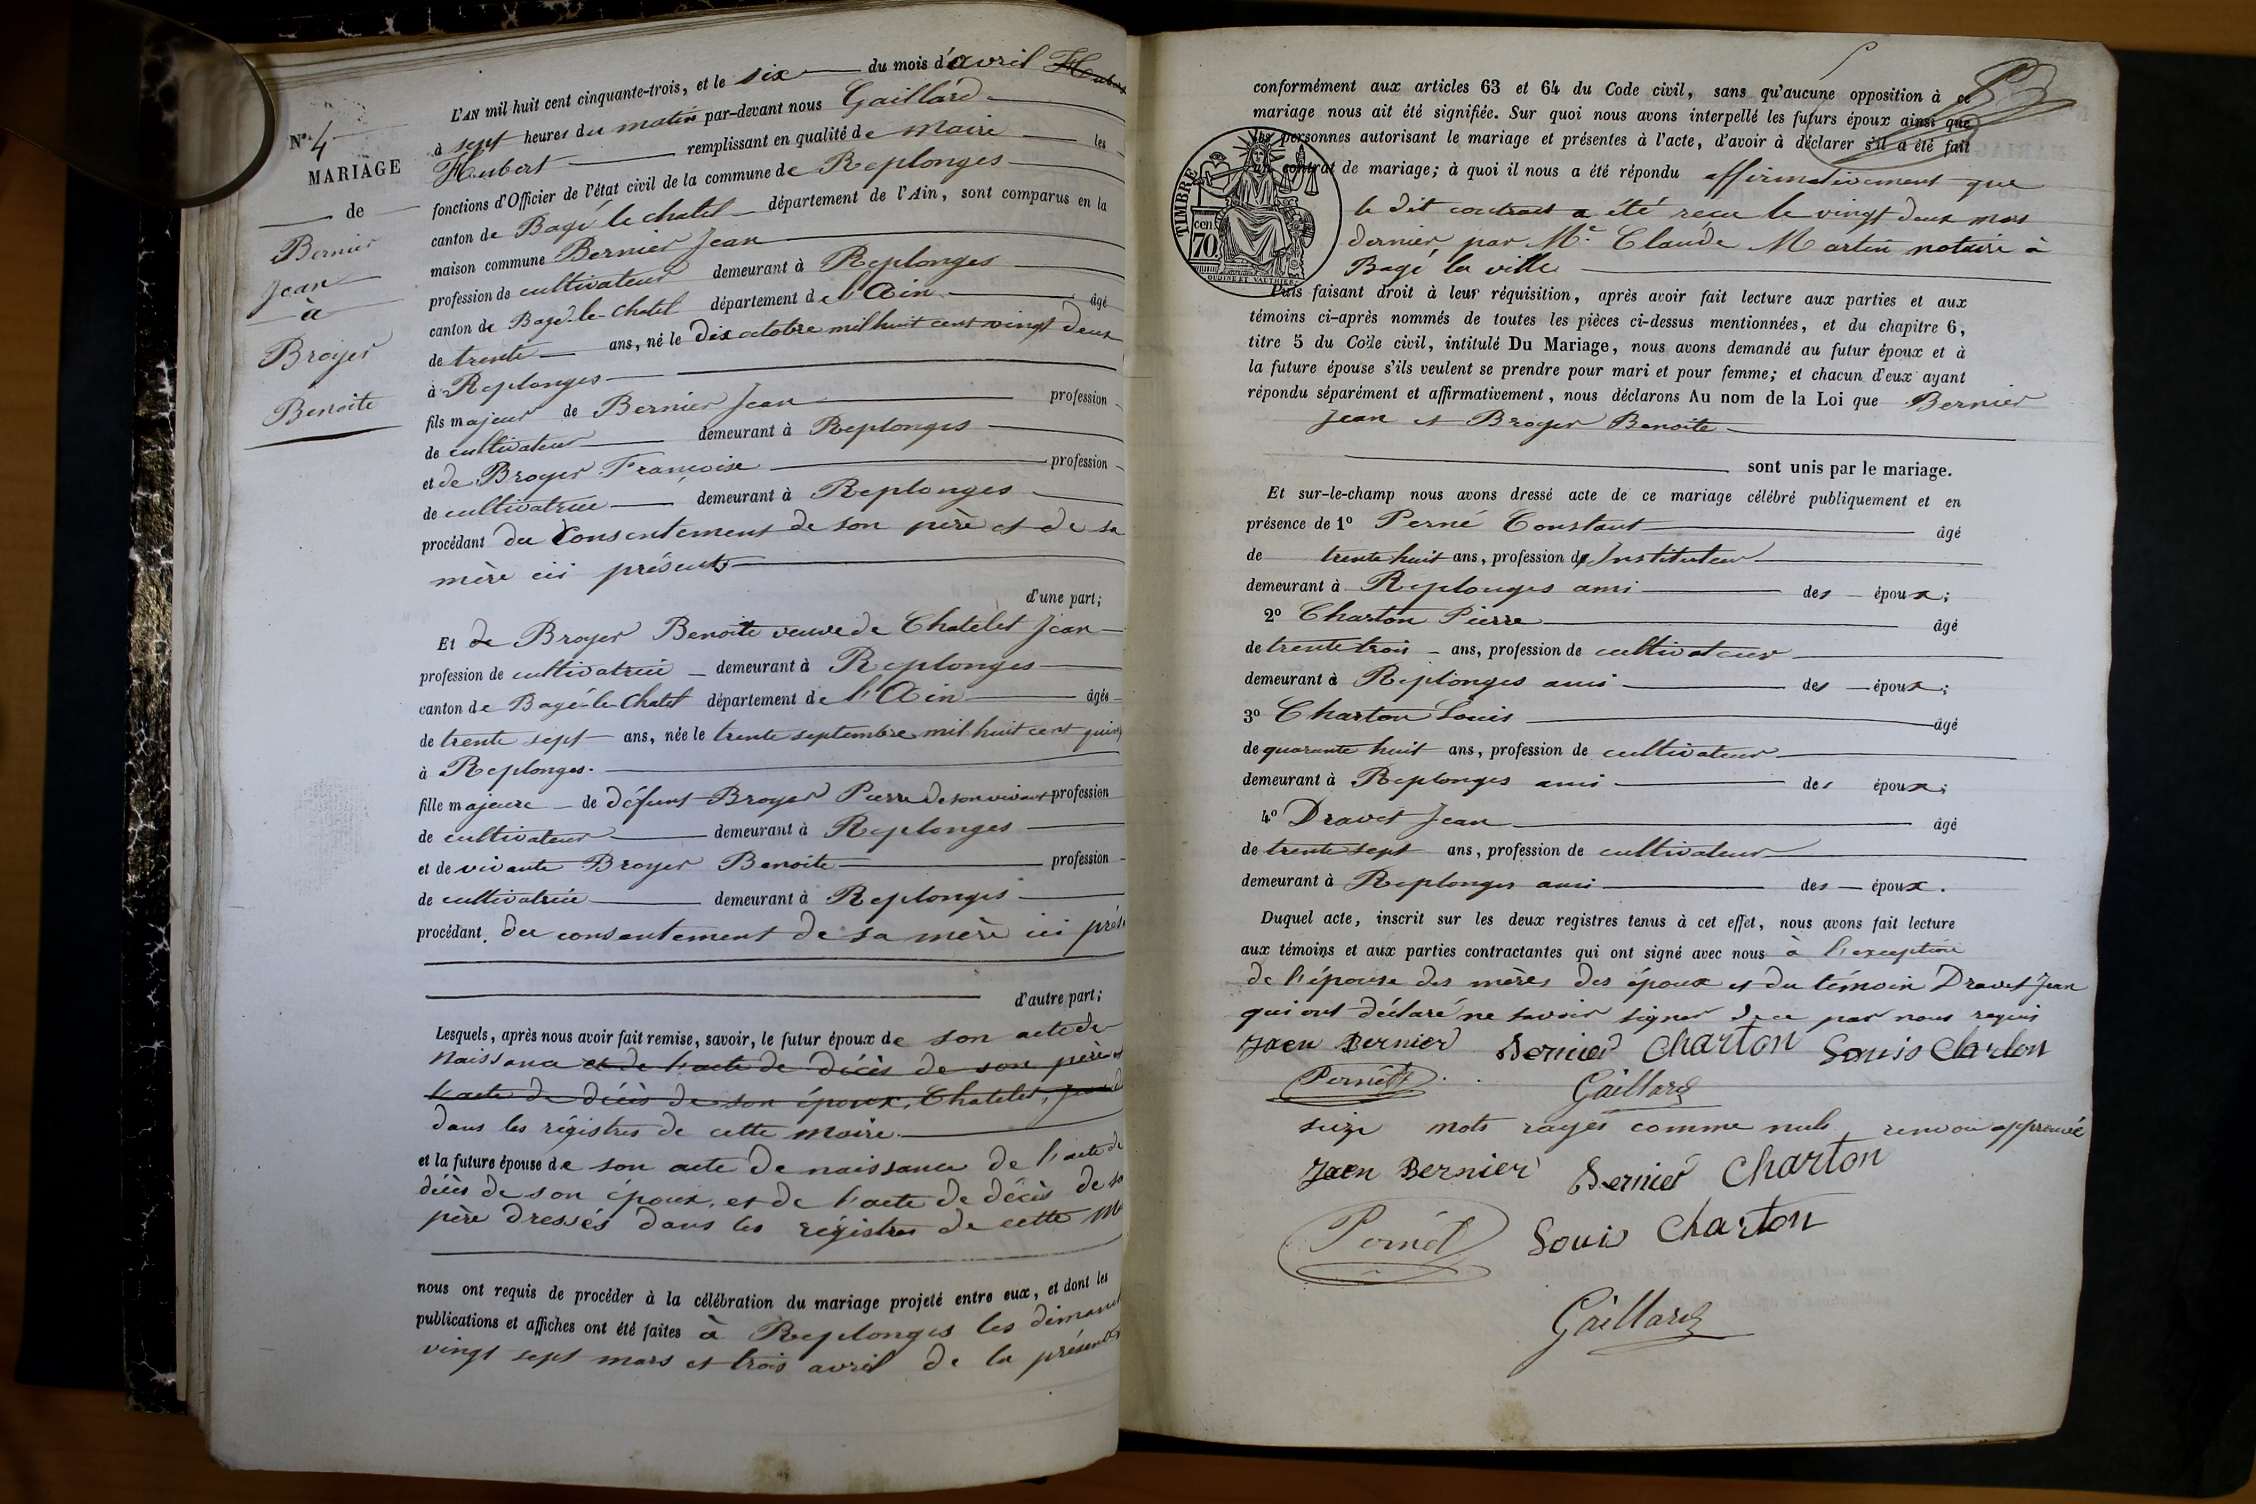 N° 4
MARIAGE
de
Bernier
Jean
à
Broyer
Benoite
L'AN mil huit cent cinquante-trois, et le six du mois d'avril
à sept heures du matin par-devant nous Gaillard
Hubert remplissant en qualité de Maire les
fonctions d'Officier de l'état civil de la commune de Replonges
canton de Bagé le chatel département de l'Ain, sont comparus en la
maison commune Bernier Jean
profession de cultivateur demeurant à Replonges
canton de Bagé-le-chatel département de l'Ain âgé
de trente ans, né le dix octobre mil huit cent vingt deux
à Replonges
fils majeur de Bernier Jean profession
de cultivateur demeurant à Replonges
et de Broyer Françoise profession
de cultivatrice demeurant à Replonges
procédant du consentement de son père et de sa
mère ici présents
d'une part;
Et de Broyer Benoite veuve de Chatelet Jean
profession de cultivatrice demeurant à Replonges
canton de Bagé-le-Chatel département de l'Ain âgée
de trente sept ans, née le trente septembre mil huit cent quinz
à Replonges.
fille majeure de défunt Broyer Pierre de son vivant profession
de cultivateur demeurant à Replonges
et de vivante Broyer Benoite profession
de cultivatrice demeurant à Replonges
procédant du consentement de sa mère ici prés
d'autre part;
Lesquels, après nous avoir fait remise, savoir, le futur époux de son acte de
naissance et de l'acte de décès de son père et
l'acte de décès de son époux, Chatelet, Jean
dans les régistres de cette Mairie.
et la future épouse de son acte de naissance de l'acte de
décès de son époux, et de l'acte de décès de so
père dressés dans les régistres de cette M
nous ont requis de procéder à la célébration du mariage projeté entre eux, et dont les
publications et affiches ont été faites à Replonges les diman
vingt sept mars et trois avril de la présente
conformément aux articles 63 et 64 du Code civil, sans qu'aucune opposition à ce
mariage nous ait été signifiée. Sur quoi nous avons interpellé les futurs époux ainsi que
les personnes autorisant le mariage et présentes à l'acte, d'avoir à déclarer s'il a été fait
un contrat de mariage; à quoi il nous a été répondu affirmativement que
le dit contrat a été reçu le vingt deux mars
dernier par Me Claude Martin notaire à
Bagé la ville
TIMBRE
70 cen.
OUDINÉ ET VAUTHIER
Puis faisant droit à leur réquisition, après avoir fait lecture aux parties et aux
témoins ci-après nommés de toutes les pièces ci-dessus mentionnées, et du chapitre 6,
titre 5 du Code civil, intitulé Du Mariage, nous avons demandé au futur époux et à
la future épouse s'ils veulent se prendre pour mari et pour femme; et chacun d'eux ayant
répondu séparément et affirmativement, nous déclarons Au nom de la Loi que Bernier
Jean et Broyer Benoite
sont unis par le mariage.
Et sur-le-champ nous avons dressé acte de ce mariage célébré publiquement et en
présence de 1° Perné Constant âgé
de trente huit ans, profession d'Instituteur
demeurant à Replonges ami des époux;
2° Charton Pierre âgé
de trente trois ans, profession de cultivateur
demeurant à Replonges ami des époux;
3° Charton Louis âgé
de quarante huit ans, profession de cultivateur
demeurant à Replonges ami des époux;
4° Dravet Jean âgé
de trente sept ans, profession de cultivateur
demeurant à Replonges ami des époux.
Duquel acte, inscrit sur les deux registres tenus à cet effet, nous avons fait lecture
aux témoins et aux parties contractantes qui ont signé avec nous à l'exception
de l'épouse des mères des époux et du témoin Dravet Jean
qui ont déclaré ne savoir signer de ce par nous requis
Jaen Bernier Bernier Charton Louis Charton
Pernet Gaillard
seize mots rayés comme nuls, renvoi approuvé
Jaen Bernier Bernier Charton
Pernet Louis Charton
Gaillard